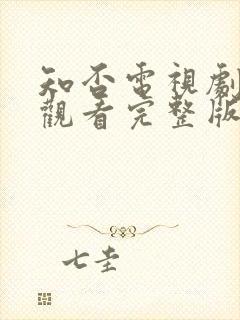 知否電視劇
觀看完整版
七圭